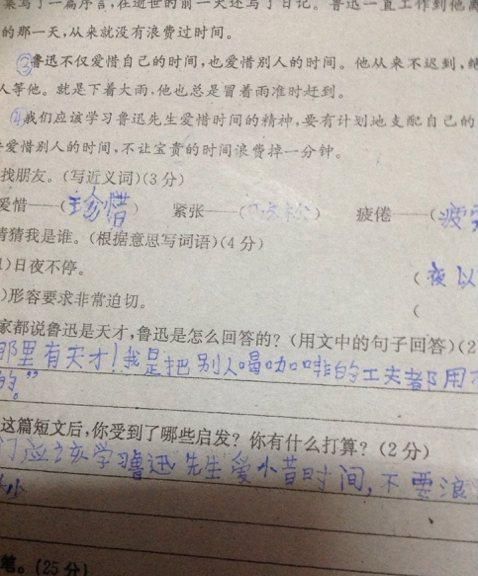 集写了一篇序言,在逝世的前一天还写了日记。鲁迅一直工作到他离
的那一天,从来就没有浪费过时间。
③鲁迅不仅爱惜自己的时间,也爱惜别人的时间。他从来不迟到,绝
人等他。就是下着大雨,他也总是冒着雨准时赶到。
④我们应该学习鲁迅先生爱惜时间的精神,要有计划地支配自己的
爱惜别人的时间,不让宝贵的时间浪费掉一分钟。
找朋友。(写近义词)(3分)
爱惜——(珍惜) 紧张——( ) 疲倦——(疲
猜猜我是谁。(根据意思写词语)(4分)
1)日夜不停。 (夜以
)形容要求非常迫切。 (
家都说鲁迅是天才,鲁迅是怎么回答的?(用文中的句子回答)(2
那里有天才!我是把别人喝咖啡的工夫都用
的。”
这篇短文后,你受到了哪些启发?你有什么打算?(2分)
门应该学习鲁迅先生爱惜时间,不要浪
笔。(25分)